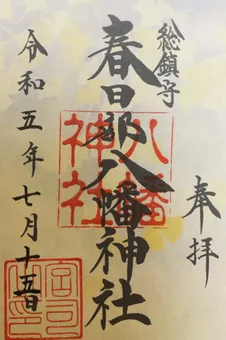 奉拝
総鎮守
春日部八幡神社
八幡
神社
令和五年七月十五日